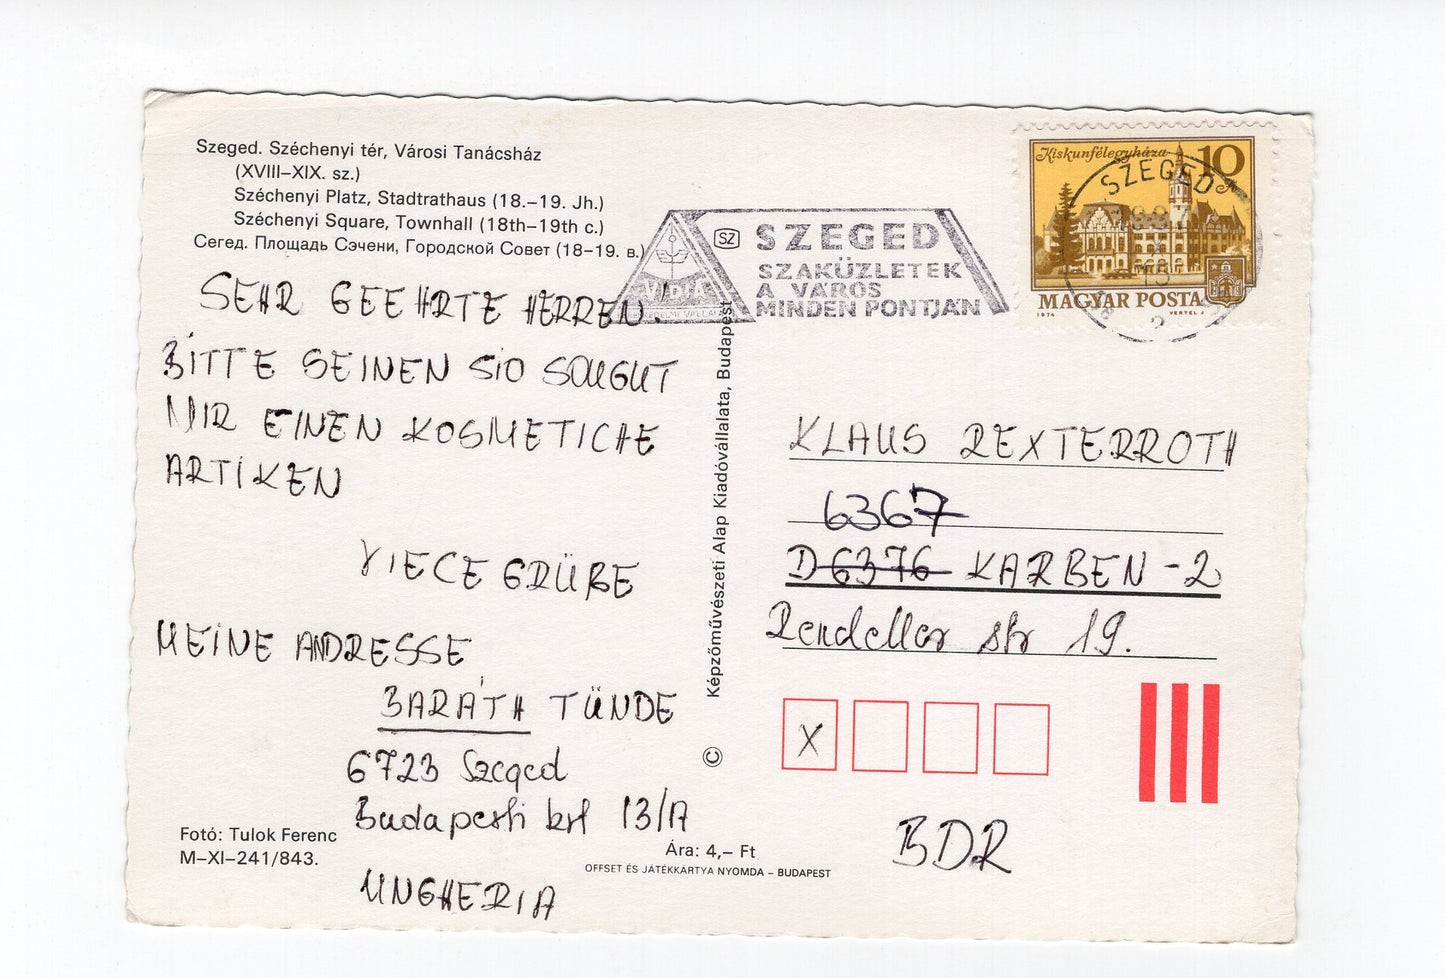 Szeged. Széchenyi tér, Városi Tanácsház
(XVIII–XIX. sz.)
Széchenyi Platz, Stadtrathaus (18.–19. Jh.)
Széchenyi Square, Townhall (18th–19th c.)
Сегед. Площадь Сэчени, Городской Совет (18–19. в.)
SEHR GEEHRTE HERREN!
BITTE SEINEN SIO SOUGUT
MIR EINEN KOSMETICHE
ARTIKEN
VIECE GRÜBE
MEINE ANDRESSE
BARÁTH TÜNDE
6723 Szeged
Budapesti krt 13/A
UNGHERIA
Fotó: Tulok Ferenc
M–XI–241/843.
Ára: 4,– Ft
OFFSET ÉS JÁTÉKKÁRTYA NYOMDA – BUDAPEST
© Képzőművészeti Alap Kiadóvállalata, Budapest
SZ
SZEGED
SZAKÜZLETEK
A VÁROS
MINDEN PONTJÁN
Kiskunfélegyháza 10 Ft
MAGYAR POSTA
1974 VERTEL J.
SZEGED
2
KLAUS REXTERROTH
6367
D 6376 KARBEN-2
Rendeller str 19.
X
BDR